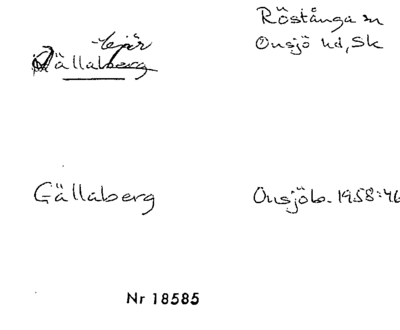 Röstånga sn
Onsjö hd, Sk
Gällaberg
Gällaberg
Onsjöb. 1958:46
Nr 18585